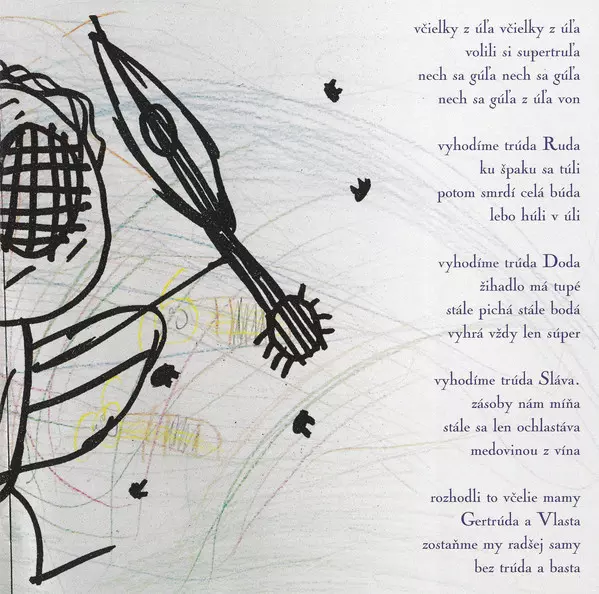 včielky z úľa včielky z úľa
volili si supertruľa
nech sa gúľa nech sa gúľa
nech sa gúľa z úľa von
vyhodíme trúda Ruda
ku špaku sa túli
potom smrdí celá búda
lebo húli v úli
vyhodíme trúda Doda
žihadlo má tupé
stále pichá stále bodá
vyhrá vždy len súper
vyhodíme trúda Sláva.
zásoby nám míňa
stále sa len ochlastáva
medovinou z vína
rozhodli to včelie mamy
Gertrúda a Vlasta
zostaňme my radšej samy
bez trúda a basta